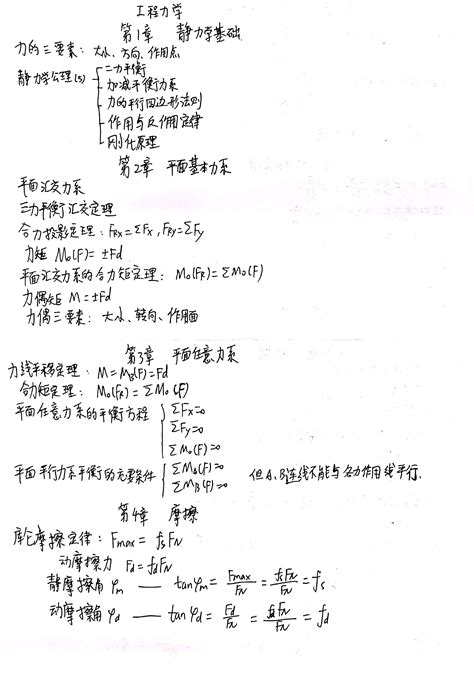 工程力学
第1章 静力学基础
力的三要素：大小、方向、作用点
静力学公理(5) 二力平衡
加减平衡力系
力的平行四边形法则
作用与反作用定律
刚化原理
第2章 平面基本力系
平面汇交力系
三力平衡汇交定理
合力投影定理：FRx=ΣFx, FRy=ΣFy
力矩 Mo(F)=±Fd
平面汇交力系的合力矩定理：Mo(FR)=ΣMo(F)
力偶矩 M=±Fd
力偶三要素：大小、转向、作用面
第3章 平面任意力系
力线平移定理：M=MB(F)=Fd
合力矩定理：Mo(FR)=ΣMo(F)
平面任意力系的平衡方程 ΣFx=0
ΣFy=0
ΣMo(F)=0
平面平行力系平衡的充要条件 ΣMA(F)=0 但A、B连线不能与各力作用线平行.
ΣMB(F)=0
第4章 摩擦
库仑摩擦定律：Fmax=fsFN
动摩擦力 Fd=fdFN
静摩擦角φm — tanφm=Fmax/FN=fsFN/FN=fs
动摩擦角φd — tanφd=Fd/FN=fdFN/FN=fd